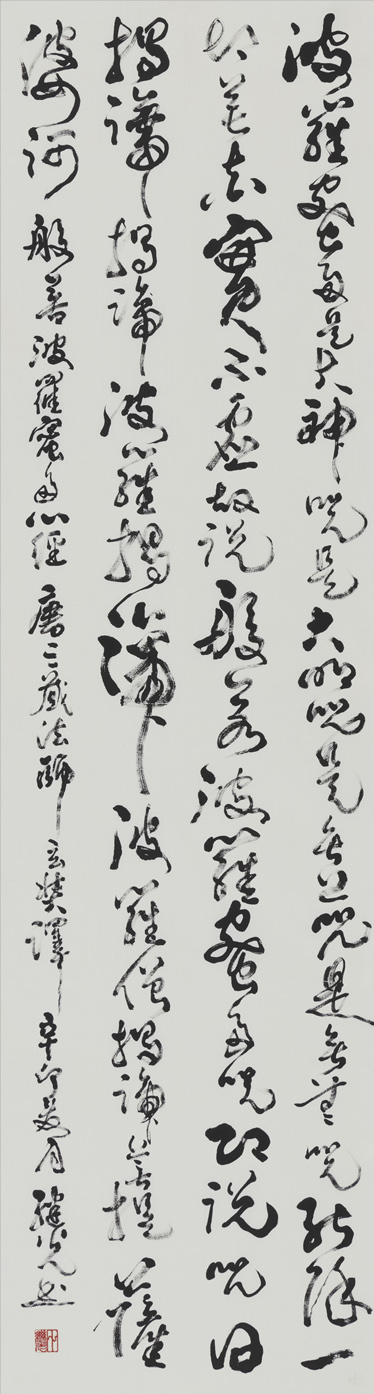 波羅蜜多是大神咒是大明咒是無上咒是無等等咒能除一
切苦真實不虛故說般若波羅蜜多咒即說咒曰
揭諦揭諦波羅揭諦波羅僧揭諦菩提薩
婆訶 般若波羅蜜多心經 唐三藏法師玄奘譯 辛卯夏月 书